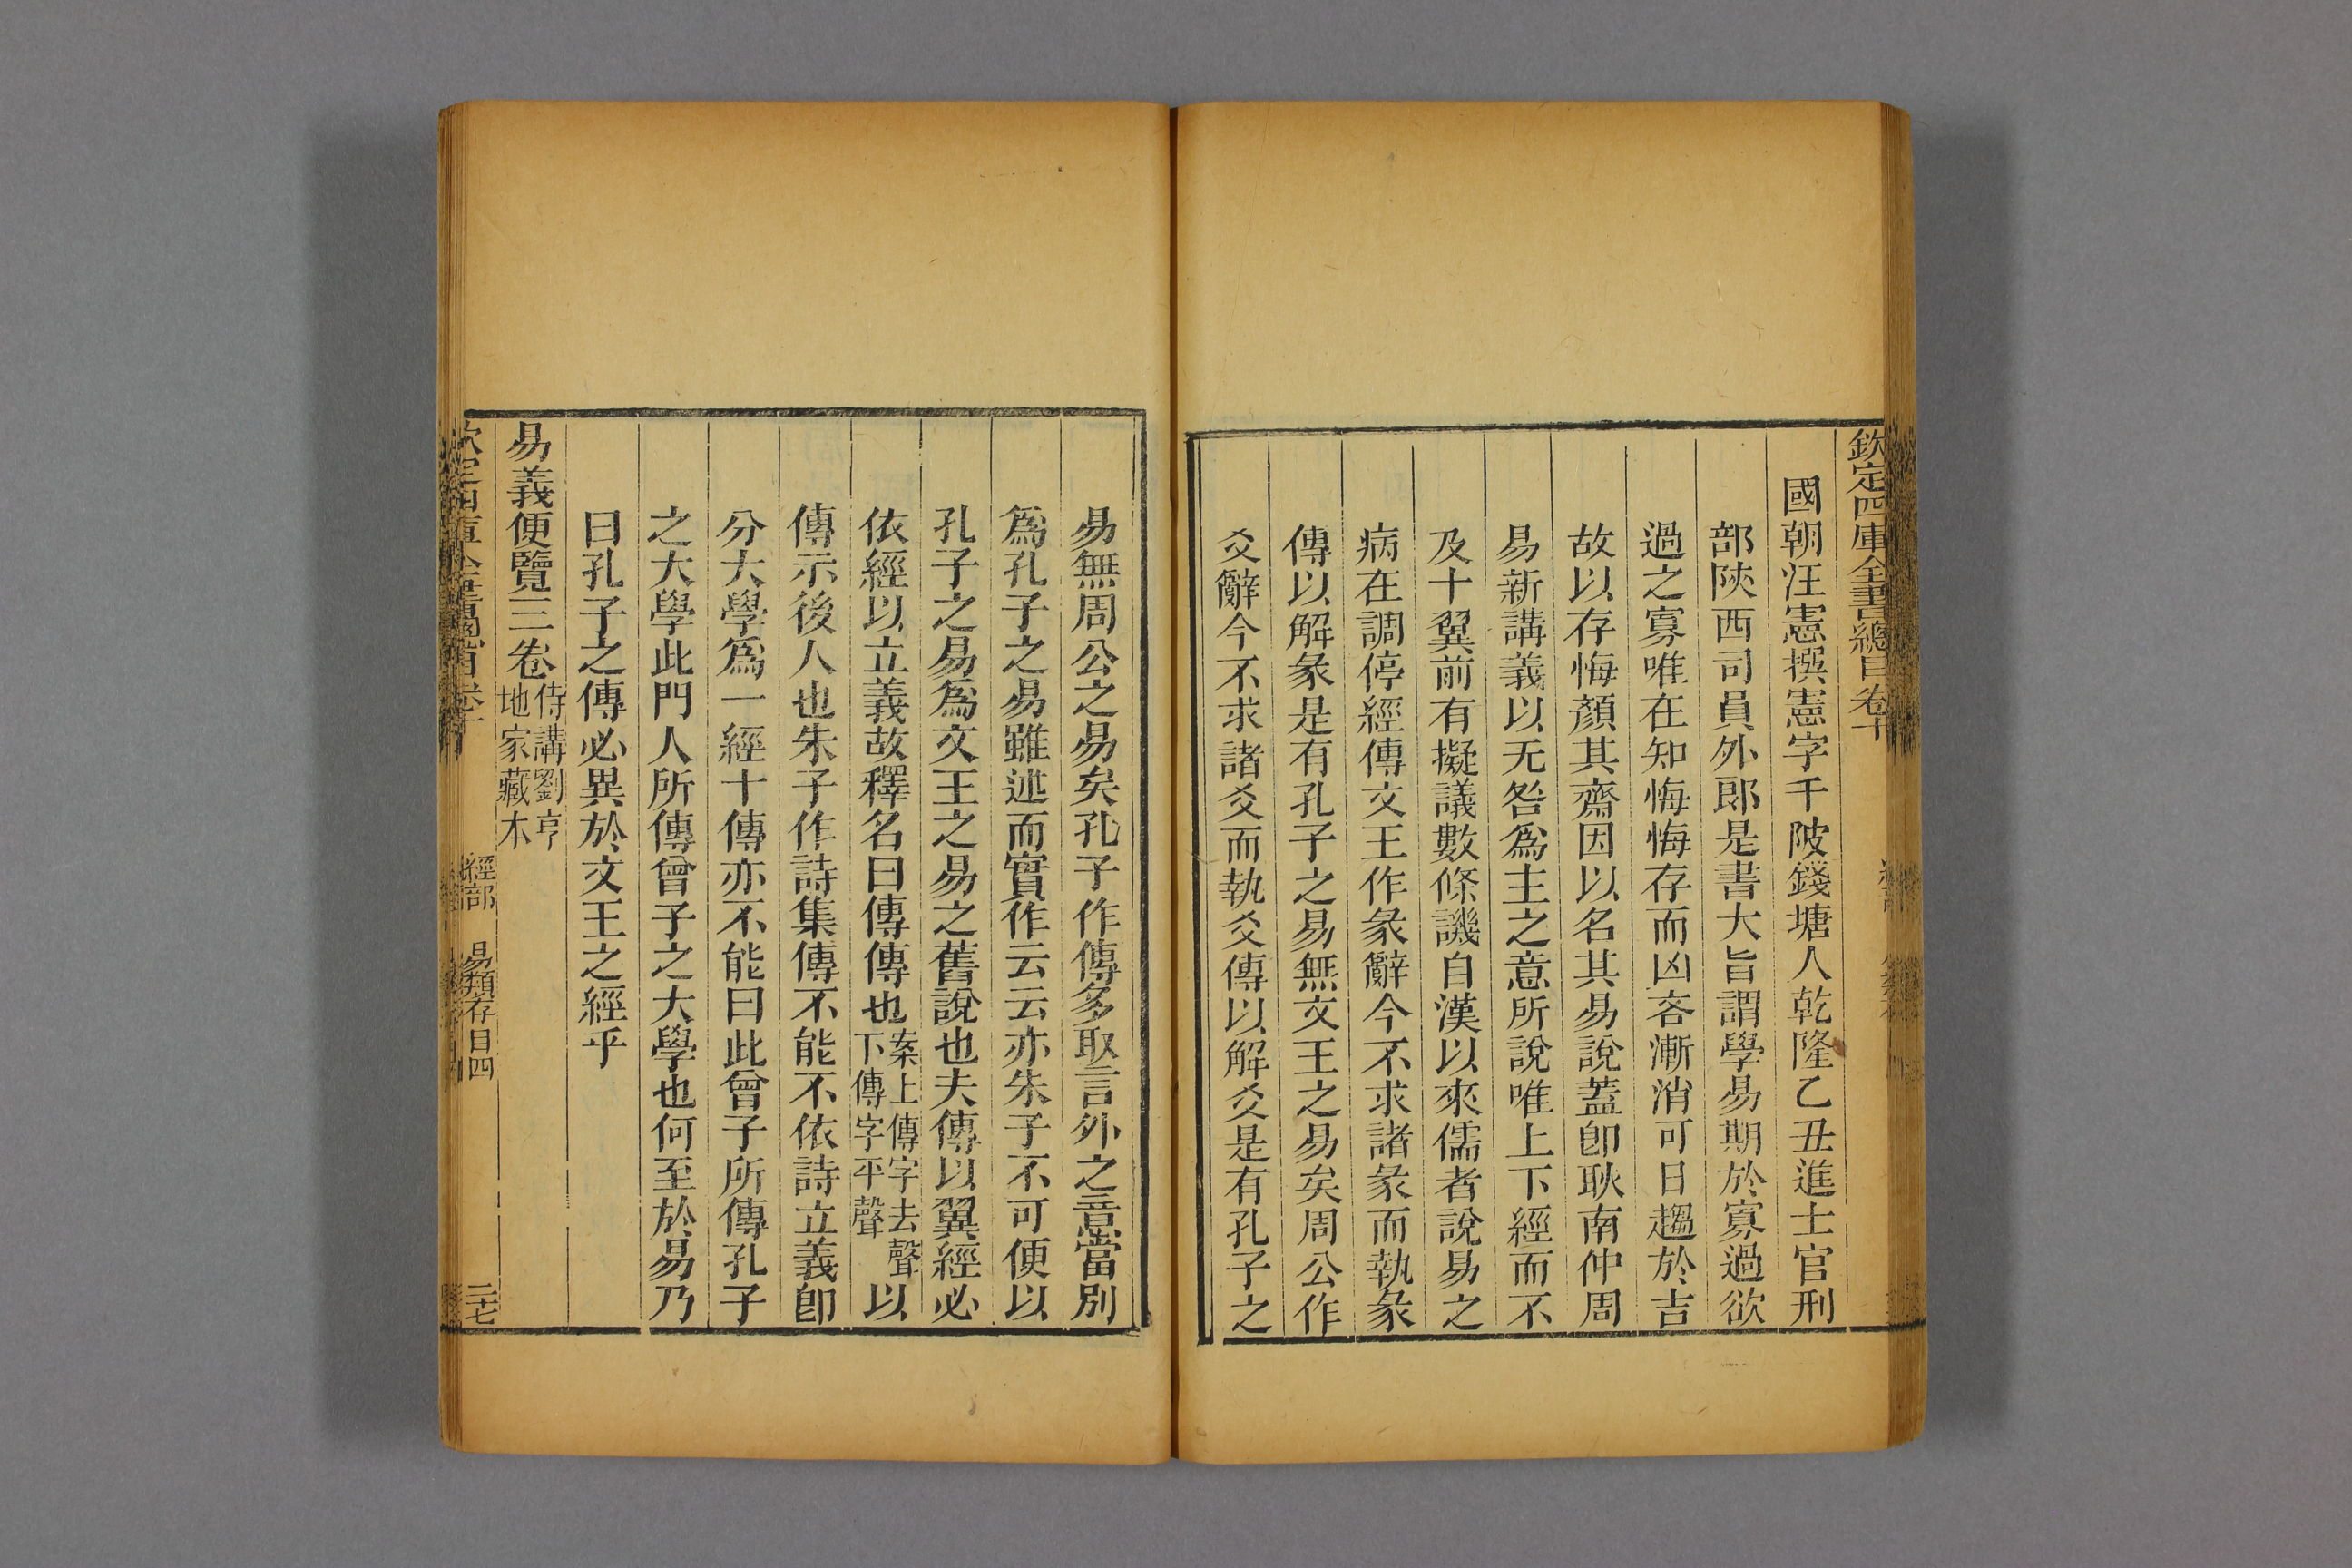 欽定四庫全書總目卷十
國朝汪憲撰憲字千陂錢塘人乾隆乙丑進士官刑
部陝西司員外郎是書大旨謂學易期於寡過欲
過之寡唯在知悔悔存而凶吝漸消可日趨於吉
故以存悔顏其齋因以名其易說蓋卽耿南仲周
易新講義以无咎爲主之意所說唯上下經而不
及十翼前有擬議數條譏自漢以來儒者說易之
病在調停經傳文王作彖辭今不求諸彖而執彖
傳以解彖是有孔子之易無文王之易矣周公作
爻辭今不求諸爻而執爻傳以解爻是有孔子之
易無周公之易矣孔子作傳多取言外之意當別
爲孔子之易雖述而實作云云亦朱子不可便以
孔子之易爲文王之易之舊說也夫傳以翼經必
依經以立義故釋名曰傳傳也案上傳字去聲下傳字平聲以
傳示後人也朱子作詩集傳不能不依詩立義卽
分大學爲一經十傳亦不能曰此曾子所傳孔子
之大學此門人所傳曾子之大學也何至於易乃
曰孔子之傳必異於文王之經乎
易義便覽三卷侍講劉亨地家藏本
經部 易類存目四 二七